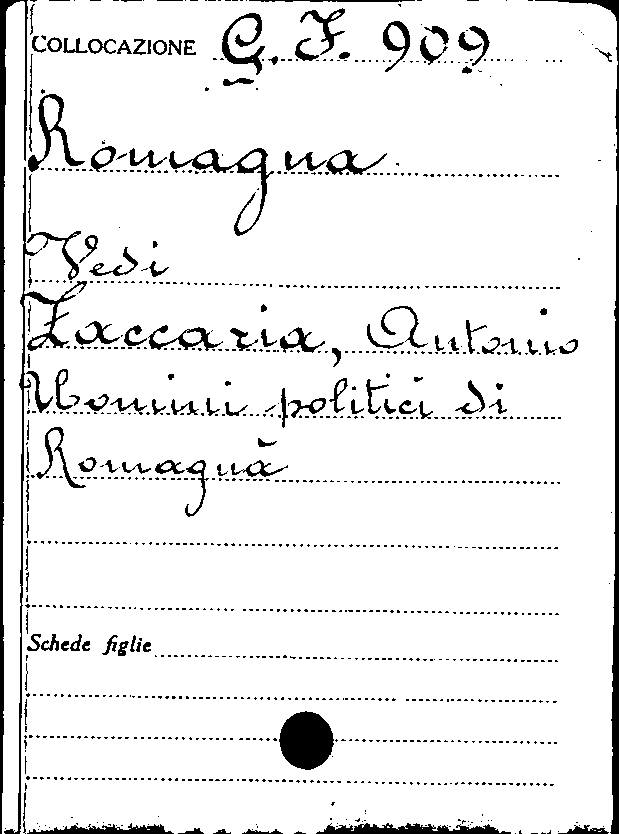 COLLOCAZIONE G. F. 909
Romagna
Vedi
Zaccaria, Antonio
Uomini politici di
Romagna
Schede figlie